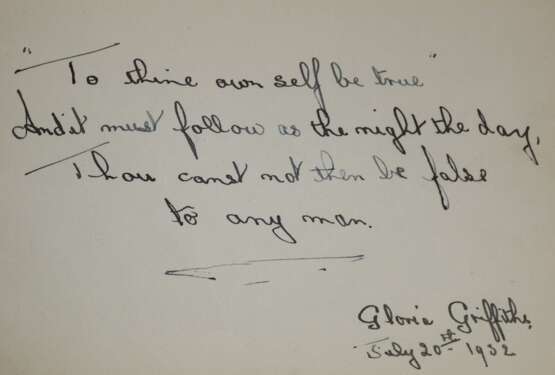 "To thine own self be true"
And it must follow as the night the day,
Thou canst not then be false
to any man.
Gloria Griffiths,
July 20th 1932